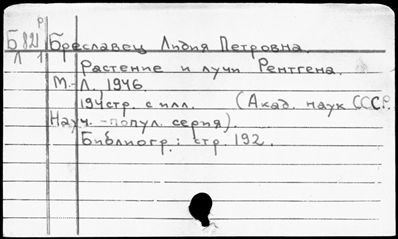 Р
Б 821 Бреславец Лидия Петровна.
Л 1
Растение и лучи Рентгена.
М.-Л. 1946.
194 стр. с илл. (Акад. наук СССР.
Науч.-попул. серия).
Библиогр.: стр. 192.